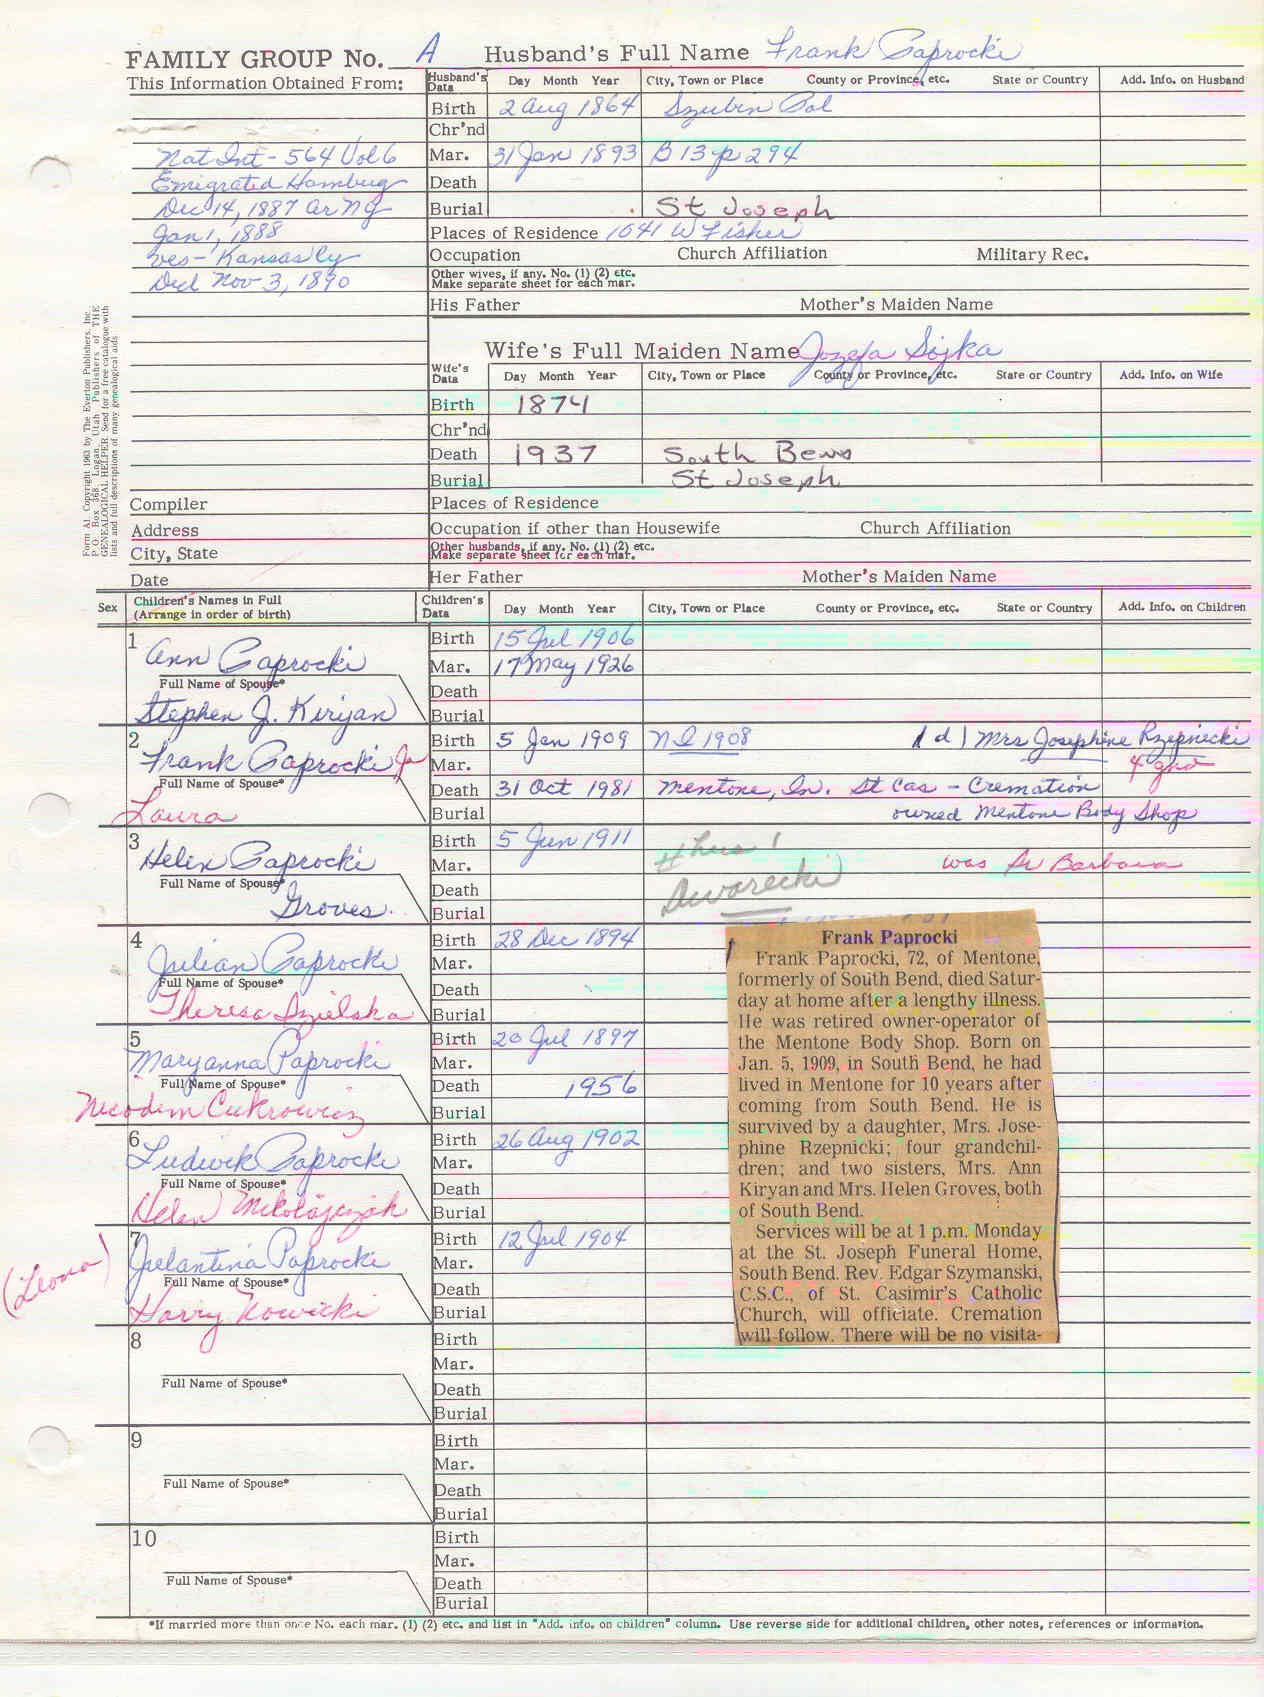 FAMILY GROUP No. A Husband's Full Name Frank Paprocki
This Information Obtained From:
Husband's Data Day Month Year City, Town or Place County or Province, etc. State or Country Add. Info. on Husband
Birth 2 Aug 1864 Szubin Pol
Chr'nd
Nat Int - 564 Vol 6
Mar. 31 Jan 1893 B 13 p 294
Emigrated Hamburg
Death
Dec 14, 1887 ar NY
Burial St Joseph
Jan 1, 1888
Places of Residence 1041 W Fisher
res - Kansas Cy
Occupation Church Affiliation Military Rec.
Decl Nov 3, 1890
Other wives, if any. No. (1) (2) etc.
Make separate sheet for each mar.
His Father Mother's Maiden Name
Form A1. Copyright 1963 by The Everton Publishers, Inc.
P.O. Box 368, Logan, Utah Publishers of THE
GENEALOGICAL HELPER. Send for a free catalogue with
lists and full descriptions of many genealogical aids
Wife's Full Maiden Name Jozefa Sojka
Wife's Data Day Month Year City, Town or Place County or Province, etc. State or Country Add. Info. on Wife
Birth 1874
Chr'nd
Death 1937 South Bend
Burial St Joseph
Compiler Places of Residence
Address Occupation if other than Housewife Church Affiliation
City, State Other husbands, if any. No. (1) (2) etc.
Make separate sheet for each mar.
Date Her Father Mother's Maiden Name
Sex Children's Names in Full
(Arrange in order of birth)
Children's Data Day Month Year City, Town or Place County or Province, etc. State or Country Add. Info. on Children
1 Ann Paprocki
Birth 15 Jul 1906
Mar. 17 May 1926
Full Name of Spouse*
Death
Stephen J. Kirijan
Burial
2 Frank Paprocki Jr
Birth 5 Jan 1909 ND 1908 (d) Mrs Josephine Rzepnicki
Mar. 4 gnd
Full Name of Spouse*
Death 31 Oct 1981 Mentone, In. St Cas - Cremation
Laura
Burial owned Mentone Body Shop
3 Helen Paprocki
Birth 5 Jun 1911
Mar. was Sr Barbara
Full Name of Spouse*
Death Dworecki
Groves
Burial
4 Julian Paprocki
Birth 28 Dec 1894
Mar.
Full Name of Spouse*
Death
Theresa Dzielska
Burial
5 Maryanna Paprocki
Birth 20 Jul 1897
Mar.
Full Name of Spouse*
Death 1956
Nicodim Cukrowicz
Burial
6 Ludwik Paprocki
Birth 26 Aug 1902
Mar.
Full Name of Spouse*
Death
Helen Mikolajczak
Burial
7 Pelantina Paprocki
(Leona)
Birth 12 Jul 1904
Mar.
Full Name of Spouse*
Death
Harry Nowicki
Burial
Frank Paprocki
Frank Paprocki, 72, of Mentone,
formerly of South Bend, died Satur-
day at home after a lengthy illness.
He was retired owner-operator of
the Mentone Body Shop. Born on
Jan. 5, 1909, in South Bend, he had
lived in Mentone for 10 years after
coming from South Bend. He is
survived by a daughter, Mrs. Jose-
phine Rzepnicki; four grandchil-
dren; and two sisters, Mrs. Ann
Kiryan and Mrs. Helen Groves, both
of South Bend.
Services will be at 1 p.m. Monday
at the St. Joseph Funeral Home,
South Bend. Rev. Edgar Szymanski,
C.S.C., of St. Casimir's Catholic
Church, will officiate. Cremation
will follow. There will be no visita-
8 Birth
Mar.
Full Name of Spouse*
Death
Burial
9 Birth
Mar.
Full Name of Spouse*
Death
Burial
10 Birth
Mar.
Full Name of Spouse*
Death
Burial
*If married more than once No. each mar. (1) (2) etc. and list in "Add. info. on children" column. Use reverse side for additional children, other notes, references or information.